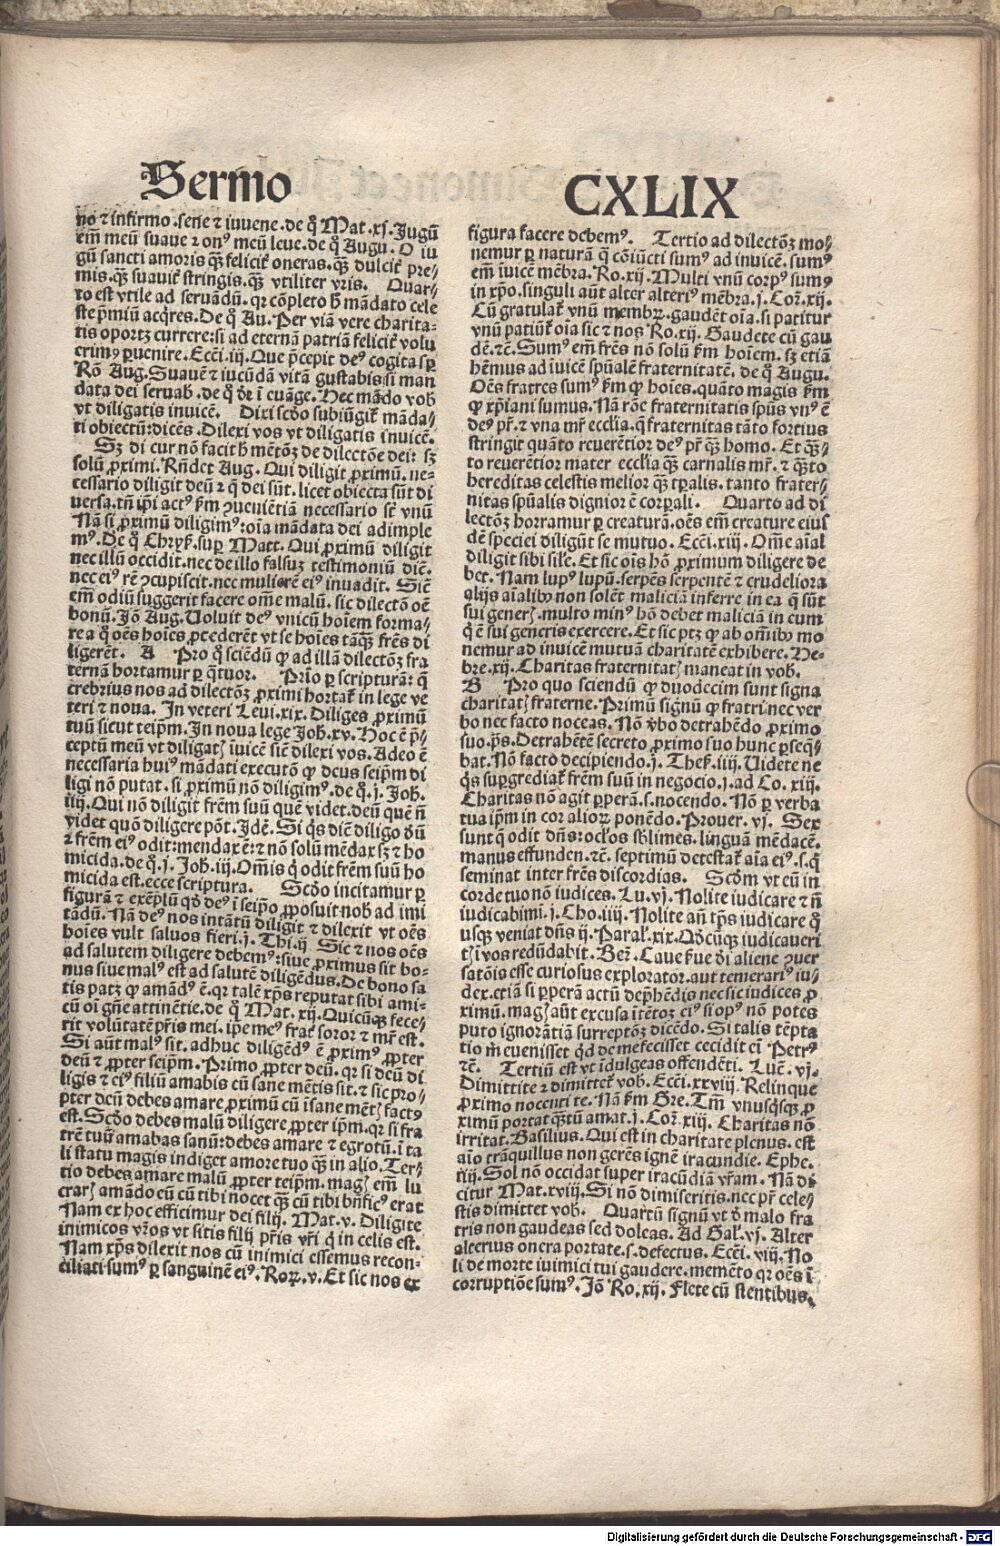 Sermo
CXLIX
no ⁊ infirmo. sene ⁊ iuvene. de q̊ Mat. xj. Jugū
em̄ meū suave ⁊ onꝰ meū leve. de q̊ Augu. O iu
gū sancti amoris qꝫ̄ felicit̄ oneras. qꝫ̄ dulcit̄ pre⸗
mis. qꝫ̄ suavit̄ stringis. qꝫ̄ vtiliter vris. Quar⸗
to est vtile ad servādū. qr cōpleto h̄ mādato cele
ste p̄miū acq̄res. De q̊ Au. Per viā vere charita⸗
tis oportꝫ currere: si ad eternā patriā felicit̄ volu
erimꝰ ꝑuenire. Ecc̄i. iij. Que p̄cepit deꝰ cogita sꝑ
Rō Aug. Suavē ⁊ iucūdā vitā gustabis si man
data dei servab. de q̊ dr̄ ī euāge. Hec mādo vob
vt diligatis invicē. Dixi scd̄o subiūgit̄ māda⸗
ti obiectū: dicēs. Dilexi vos vt diligatis invicē.
Sꝫ di cur nō facit h̄ mētōꝫ de dilectōe dei: sꝫ
solū ꝓximi. Rn̄det Aug. Qui diligit ꝓximū. ne⸗
cessario diligit deū ⁊ q̄ dei sūt. licet obiecta sūt di
uersa. tn̄ ip̄i actꝰ ẜm ꝯuenientiā necessario sē vnū
Nā si ꝓximū diligimꝰ: oīa mādata dei adimple
mꝰ. De q̊ Chrys. suꝑ Matt. Qui ꝓximū diligit
nec illū occidit. nec de illo falsuꝫ testimoniū diē.
nec eiꝰ rē ꝯcupiscit. nec mulierē eiꝰ invadit. Siē
em̄ odiū suggerit facere om̄e malū. sic dilectō oē
bonū. Jō Aug. Uoluit deꝰ vnicū hoīem forma⸗
re a q̊ oēs hoīes ꝓcederēt vt se hoīes tāqꝫ̄ frēs di
ligerēt. A Pro q̊ sciēdū ꝙ ad illā dilectōꝫ fra
ternā hortamur ꝑ q̄tuor. Prīo ꝑ scripturā: q̄
crebrius nos ad dilectōꝫ ꝓximi hortat̄ in lege ve
teri ⁊ nova. In veteri Levi. xix. Diliges ꝓximū
tuū sicut teip̄m. In nova lege Joh. xv. Hoc ē p̄⸗
ceptū meū vt diligatꝭ invicē siē dilexi vos. Adeo ē
necessaria huiꝰ mādati executō ꝙ deus seip̄m di
ligi nō putat. si ꝓximū nō diligimꝰ. de q̊. j. Joh.
iiij. Qui nō diligit frēm suū quē videt. deū quē n̄
videt quō diligere pōt. Jdē. Si q̄s diē diligo dū
⁊ frēm eiꝰ odit: mendax ē: ⁊ nō solū mēdax sꝫ ⁊ ho
micida. de q̊. j. Joh. iij. Om̄is q̄ odit frēm suū ho
micida est. ecce scriptura. Scd̄o incitamur ꝑ
figurā ⁊ exēplū qd̄ deꝰ ī seip̄o ꝓposuit nob ad imi
tādū. Nā deꝰ nos intātū diligit ⁊ dilexit vt oēs
hoīes vult salvos fieri. j. Thi. ij Sic ⁊ nos oēs
ad salutem diligere debemꝰ: siue ꝓximus sit bo⸗
nus siue malꝰ est ad salutē diligēdus. De bono sa
tis patꝫ ꝙ amādꝰ ē. qr talē xp̄s reputat sibi ami⸗
cū oī gn̄e attinētie. de q̊ Mat. xij. Quicūqꝫ fece⸗
rit volūtatē pr̄is mei. ip̄e meꝰ frat̄ soror ⁊ mr̄ est.
Si aūt malꝰ sit. adhuc diligēdꝰ ē ꝓximꝰ ꝓpter
deū ⁊ ꝓpter seip̄m. Primo ꝓpter deū. qr si deū di
ligis ⁊ eiꝰ filiū amabis cū sane mētis sit. ⁊ sic ꝓ⸗
pter deū debes amare ꝓximū cū īsane mētꝭ factꝰ
est. Scd̄o debes malū diligere ꝓpter ip̄m. qr si fra
trē tuū amabas sanū: debes amare ⁊ egrotū. ī ta
li statu magis indiget amore tuo qꝫ̄ in alio. Ter⸗
tio debes amare malū ꝓpter teip̄m. magꝭ em̄ lu
crarꝭ amādo eū cū tibi nocet qꝫ̄ cū tibi bn̄ficꝰ erat
Nam ex hoc efficimur dei filij. Mat. v. Diligite
inimicos vr̄os vt sitis filij pr̄is vr̄i q̄ in celis est.
Nam xp̄s dilexit nos cū inimici essemus recon⸗
ciliati sumꝰ ꝑ sanguinē eiꝰ. Roꝝ. v. Et sic nos ex
figura facere debemꝰ. Tertio ad dilectōꝫ mo⸗
nemur ꝑ naturā q̄ cōiūcti sumꝰ ad invicē. sumꝰ
em̄ iuicē mēbra. Ro. xij. Multi vnū corpꝰ sumꝰ
in xp̄o. singuli aūt alter alteriꝰ mēbra. j. Coꝝ. xij.
Cū gratulat̄ vnū membꝝ. gaudēt oīa. si patitur
vnū patiūt̄ oīa sic ⁊ nos Ro. xij. Gaudete cū gau
dē. ⁊c̄. Sumꝰ em̄ frēs nō solū ẜm hoīem. sꝫ etiā
hēmus ad īuicē spūalē fraternitatē. de q̊ Augu.
Oēs fratres sumꝰ ẜm ꝙ hoīes. quāto magis ẜm
ꝙ xp̄iani sumus. Nā rōe fraternitatis spūs vnꝰ ē
deꝰ pr̄. ⁊ vna mr̄ ecclīa. q̄ fraternitas tāto fortius
stringit quāto reverētior deꝰ pr̄ qꝫ̄ homo. Et qꝫ̄⸗
to reverētior mater ecclīa qꝫ̄ carnalis mr̄. ⁊ qꝫ̄to
hereditas celestis melior qꝫ̄ tꝑalis. tanto frater⸗
nitas spūalis dignior ē corꝑali. Quarto ad di
lectōꝫ hortamur ꝑ creaturā. oēs em̄ creature eius
dē speciei diligūt se mutuo. Ecc̄i. xiij. Om̄e aīal
diligit sibi sil̄e. Et sic oīs hō ꝓximum diligere de
bet. Nam lupꝰ lupū. serpēs serpentē ⁊ crudeliora
alijs aīalibꝰ non solēt maliciā inferre in ea q̄ sūt
sui generꝭ. multo minꝰ hō debet maliciā in eum
q̄ ē sui generis exercere. Et sic ptꝫ ꝙ ab om̄ibꝰ mo
nemur ad invicē mutuā charitatē exhibere. He⸗
bre. xij. Charitas fraternitatꝭ maneat in vob.
B Pro quo sciendū ꝙ duodecim sunt signa
charitatꝭ fraterne. Primū signū ꝙ fratri: nec ver
bo nec facto noceas. Nō vbo detrahēdo ꝓximo
suo. ps. Detrahētē secreto ꝓximo suo hunc ꝑseq̄⸗
bar. Nō facto decipiendo. j. Thes. iiij. Uidete ne
q̄s suꝑgrediat̄ frēm suū in negocio. j. ad Co. xiij.
Charitas nō agit ꝑperā. s. nocendo. Nō ꝑ verba
tua ip̄m in cor alioꝝ ponēdo. Prouer. vj. Sex
sunt q̄ odit dn̄s: oc̄los sb̄limes. linguā mēdacē.
manus effunden. ⁊c̄. septimū detestat̄ aīa eiꝰ. s. q̄
seminat inter frēs discordias. Scd̄m vt eū in
corde tuo nō iudices. Lu. vj. Nolite iudicare ⁊ n̄
iudicabimī. j. Cho. iiij. Nolite an̄ tp̄s iudicare q̊
usqꝫ veniat dn̄s ij. Paral. xix. Qd̄cūqꝫ iudicaueri
tꝭ ī vos redūdabit. Ber. Caue fue dī aliene ꝯuer
satōis esse curiosus explorator. aut temerariꝰ iu⸗
dex. etiā si ꝑperā actū dep̄hēdis nec sic iudices ꝓ
ximū. magꝭ aūt excusa ītētōꝫ eiꝰ si opꝰ nō potes
puto ignorātiā surreptōꝫ dicēdo. Si talis tēpta
tio m̄ evenisset qd̄ de me fecisset cecidit eī Petrꝰ
⁊c̄. Tertiū est vt īdulgeas offendēti. Lucē. vj.
Dimittite ⁊ dimittet̄ vob. Ecc̄i. xxviij. Relinque
ꝓximo nocenti te. Nā ẜm Gre. Tm̄ vnusq̄sqꝫ ꝓ
ximū portat qꝫ̄tū amat. j. Coꝝ. xiij. Charitas nō
irritat. Basilius. Qui est in charitate plenus. est
aīo trāquillus non gerēs ignē iracundie. Ephe.
iiij. Sol nō occidat super iracūdiā vr̄am. Nā di
citur Mat. xviij. Si nō dimiseritis. nec pr̄ cele⸗
stis dimittet vob. Quartū signū vt d̄ malo fra
tris non gaudeas sed doleas. Ad Gal. vj. Alter
alterius onera portate. s. defectus. Ecc̄i. viij. No
li de morte inimici tui gaudere. memēto qr oēs ī
corruptiōe sumꝰ. Jō Ro. xij. Flete cū flentibus.
Digitalisierung gefördert durch die Deutsche Forschungsgemeinschaft - DFG